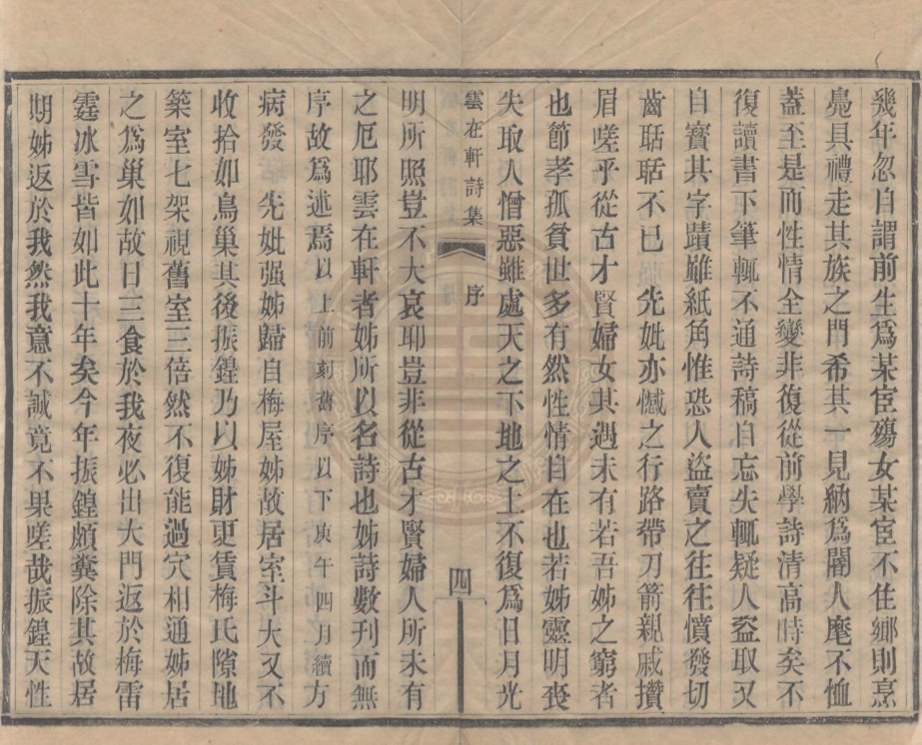 幾年忽自謂前生爲某宦殤女某宦不住鄉則烹
鳧具禮走其族之門希其一見納爲閽人麾不恤
蓋至是而性情全變非復從前學詩清高時矣不
復讀書下筆輒不通詩稿自忘失輒疑人盜取又
自寶其字蹟雖紙角惟恐人盜賣之往往憤發切
齒聒聒不已　先妣亦憾之行路帶刀箭親戚攢
眉嗟乎從古才賢婦女其遇未有若吾姊之窮者
也節孝孤貧世多有然性情自在也若姊靈明喪
失取人憎惡雖處天之下地之上不復爲日月光
雲在軒詩集　序　四
明所照豈不大哀耶豈非從古才賢婦人所未有
之厄耶雲在軒者姊所以名詩也姊詩數刊而無
序故爲述焉以上前刻舊序以下庚午四月續方
病發　先妣强姊歸自梅屋姊故居室斗大又不
收拾如鳥巢其後振鍠乃以姊財更賃梅氏隙地
築室七架視舊室三倍然不復能過穴相通姊居
之爲巢如故日三食於我夜必出大門返於梅雷
霆冰雪皆如此十年矣今年振鍠頗糞除其故居
期姊返於我然我意不誠竟不果嗟哉振鍠天性